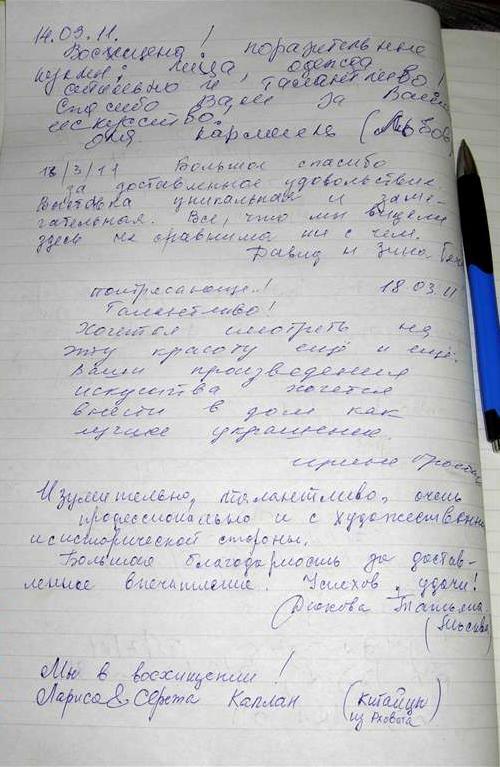 14.03.11.
Восхищена! поразительные
куклы: лица, одежда
стильно и талантливо!
Спасибо Вам за Ваше
искусство.
Кармиель (Любов
18/3/11 Большое спасибо
за доставленное удовольствие.
Выставка уникальная и заме-
чательная. Все, что мы видели
здесь не сравнимо ни с чем.
Давид и Зина
потрясающе! 18.03.11
Талантливо!
Хочется смотреть на
эту красоту ещё и ещё.
Ваши произведения
искусства хочется
внести в дом как
лучшее украшение.
Ирина
Изумительно, талантливо, очень
профессионально и с художественной
и исторической стороны.
Большая благодарность за достав-
ленное впечатление. Успехов, удачи!
Дюкова Татьяна
(Москва)
Мы в восхищении!
Лариса & Сережа Каплан (китайцы
из Рховота)